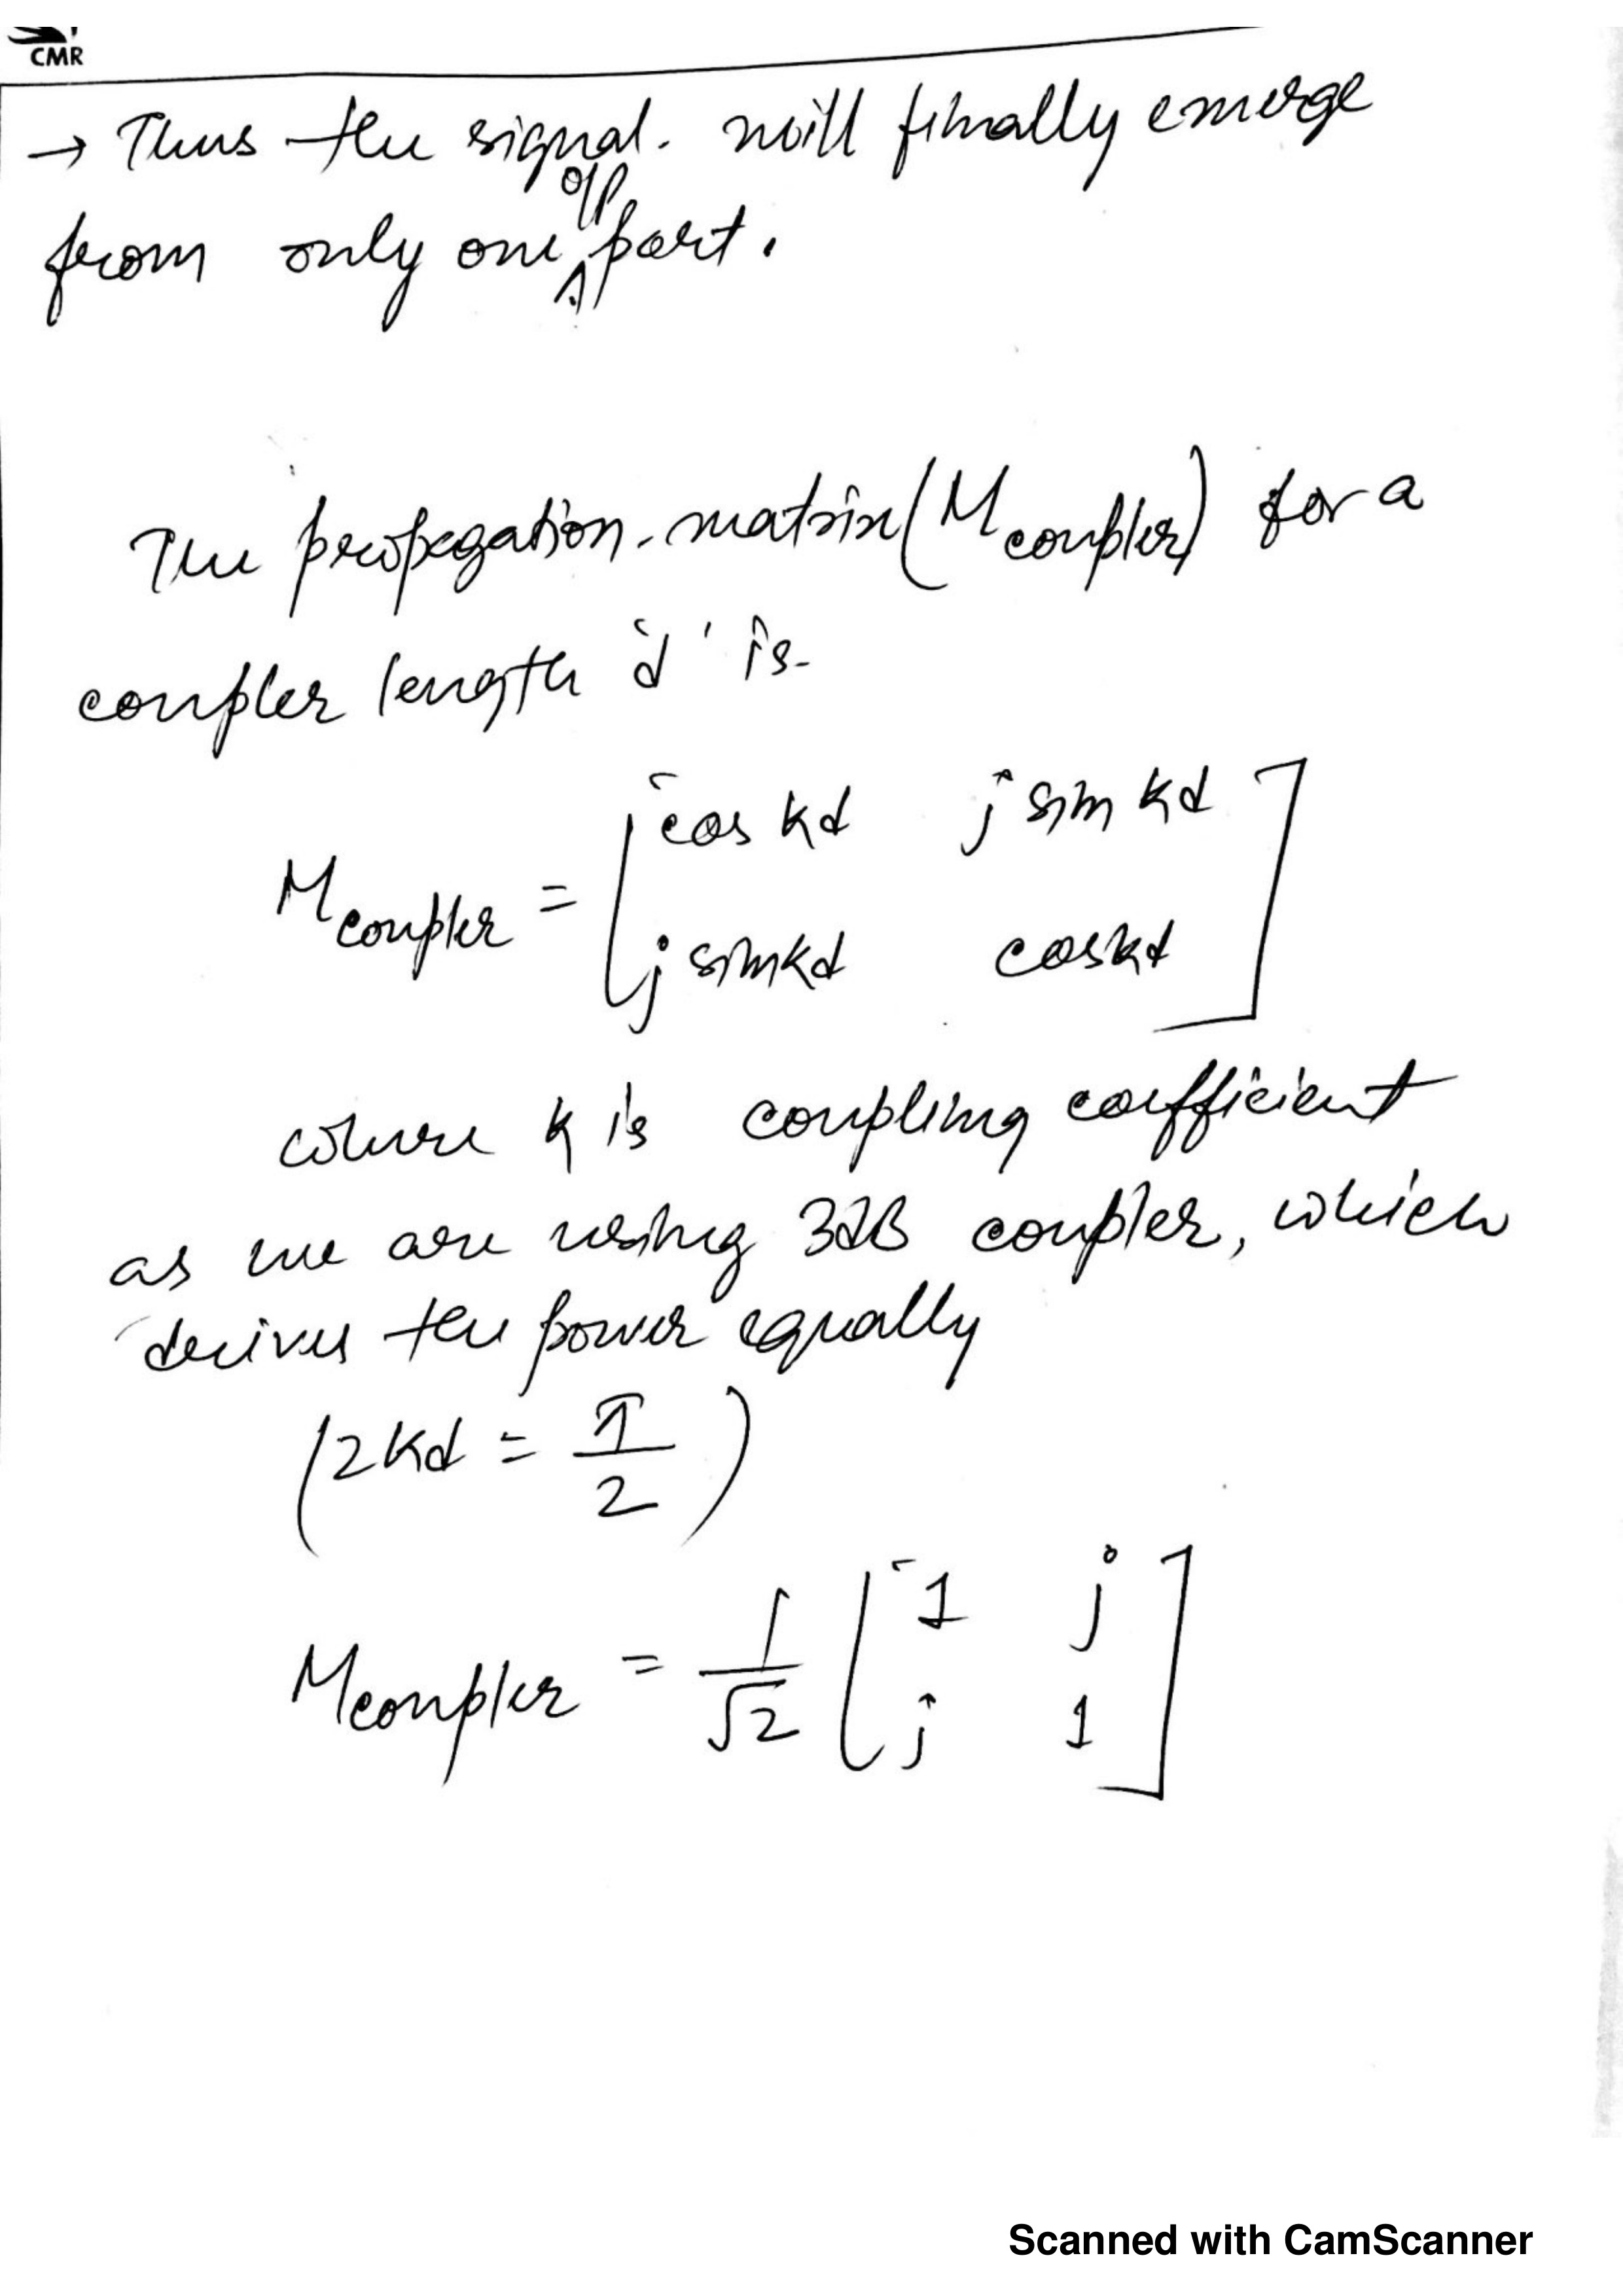 CMR
→ Thus the signal. will finally emerge
from only one o/p port.
The propagation matrix (M coupler) for a
coupler length 'd' is
M coupler = [ cos kd j sin kd
j sin kd cos kd ]
where k is coupling coefficient
as we are using 3dB coupler, which
derives the power equally
(2kd = π/2)
M coupler = 1/√2 [ 1 j
j 1 ]
Scanned with CamScanner